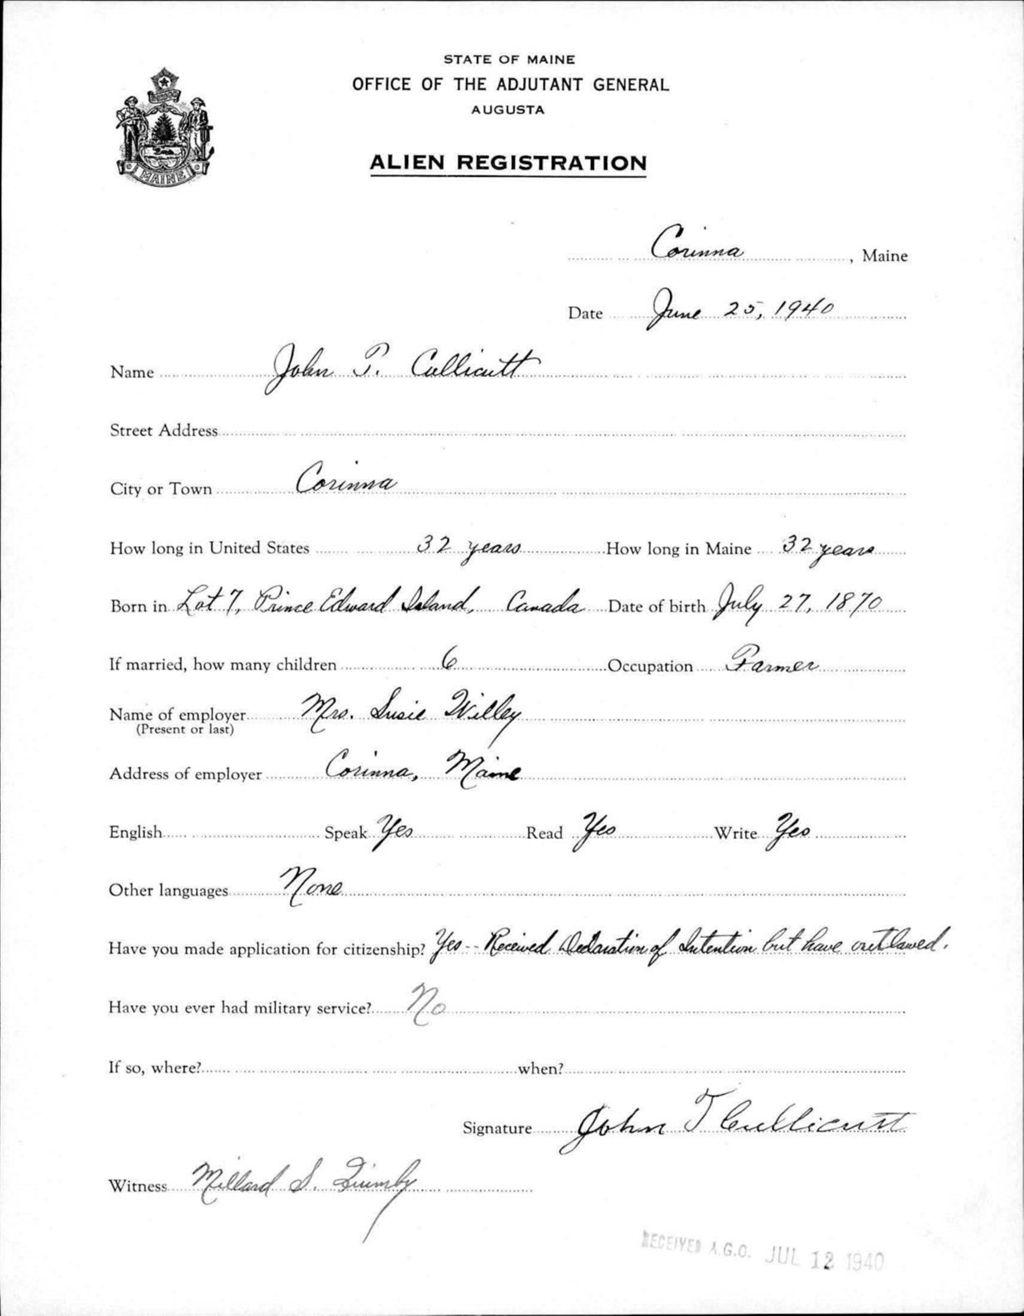 STATE OF MAINE
OFFICE OF THE ADJUTANT GENERAL
AUGUSTA
ALIEN REGISTRATION
MAINE
Corinna, Maine
Date June 25, 1940
Name John T. Cullicutt
Street Address
City or Town Corinna
How long in United States 32 years How long in Maine 32 years
Born in Lot 7, Prince Edward Island, Canada Date of birth July 27, 1870
If married, how many children 6 Occupation Farmer
Name of employer Mrs. Susie Willey
(Present or last)
Address of employer Corinna, Maine
English Speak Yes Read Yes Write Yes
Other languages None
Have you made application for citizenship? Yes -- Received Declaration of Intention but have outlawed.
Have you ever had military service? No
If so, where? when?
Signature John T Cullicutt
Witness Millard S. Quimby
RECEIVED A.G.O. JUL 12 1940